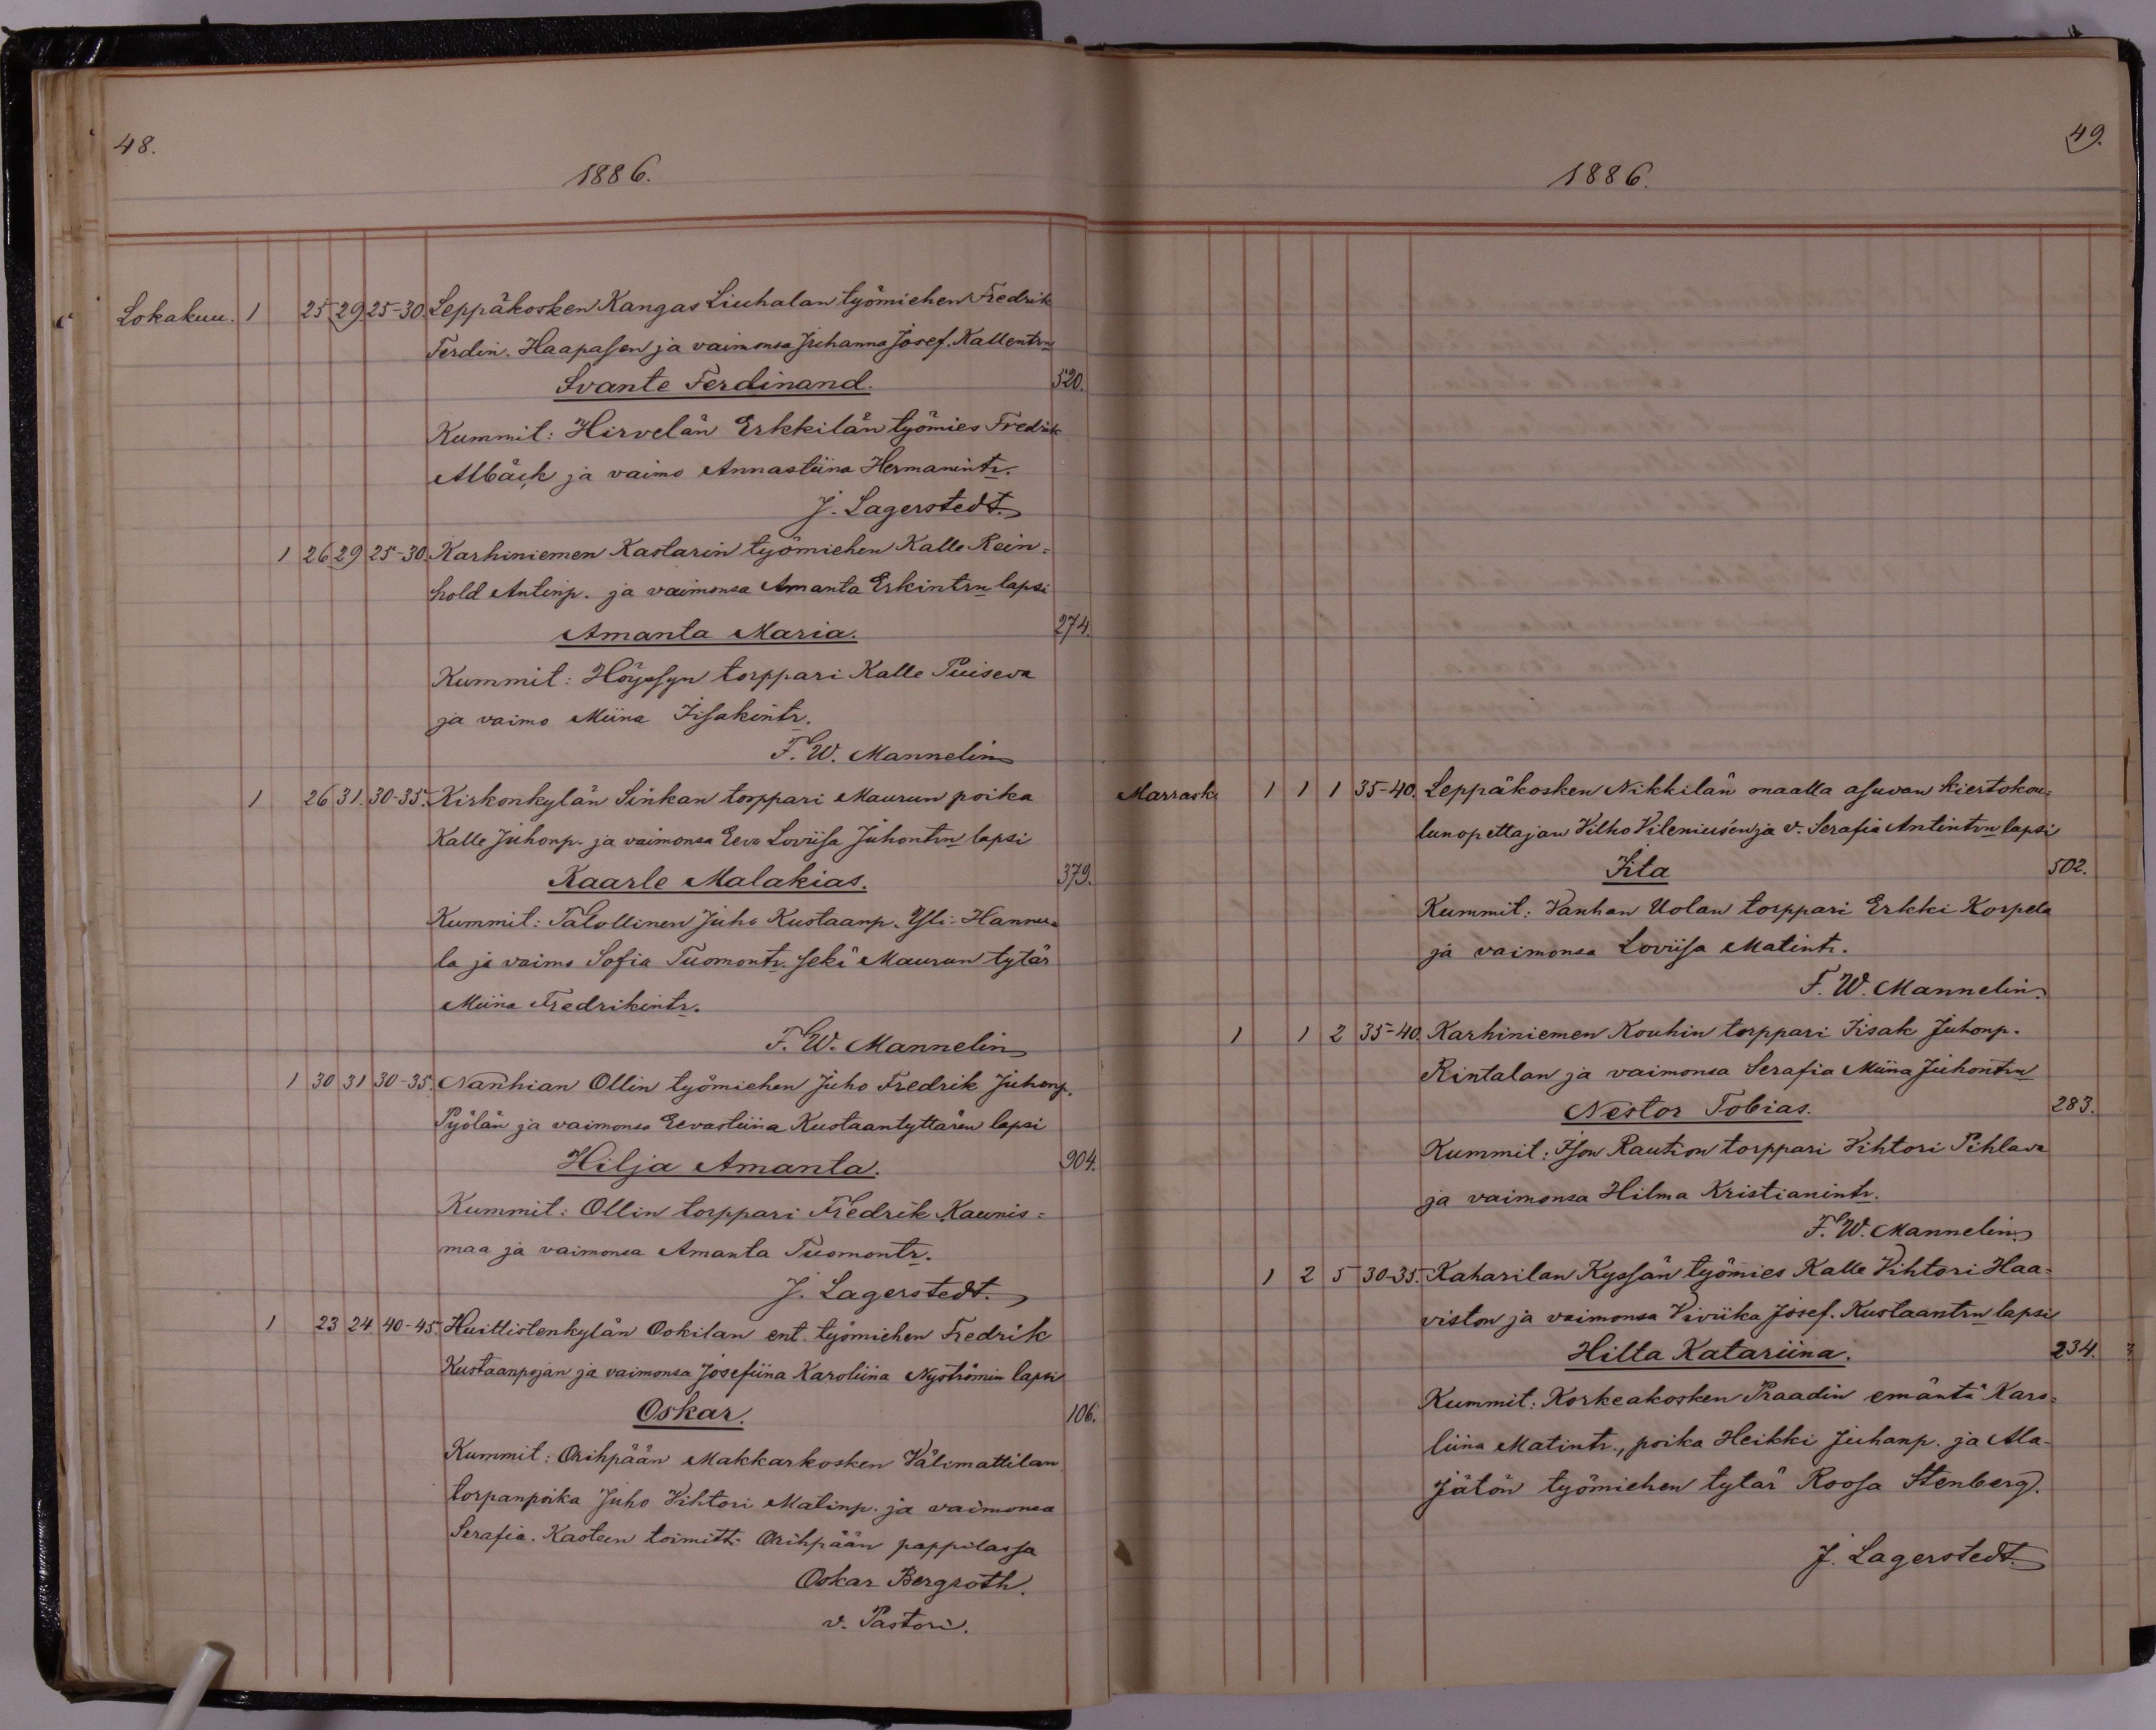 48.
1886.
Lokakuu. 1 25 29 25-30. Leppäkosken Kangas Liuhalan työmiehen Fredrik
Ferdin. Haapasen ja vaimonsa Juhanna Josef. Kallentrn
Svante Ferdinand. 520.
Kummit: Hirvelän Erkkilän työmies Fredrik
Albäck ja vaimo Annastiina Hermanintr.
J. Lagerstedt.
1 26 29 25-30 Karhiniemen Kastarin työmiehen Kalle Rein=
hold Antinp. ja vaimonsa Amanta Erkintrn lapsi
Amanta Maria. 274.
Kummit: Höyssyn torppari Kalle Puiseva
ja vaimo Miina Iisakintr.
F. W. Mannelin
1 26 31. 30-35. Kirkonkylän Sinkan torppari Maurun poika
Kalle Juhonp. ja vaimonsa Eeva Loviisa Juhontrn lapsi
Kaarle Malakias. 379.
Kummit: Talollinen Juho Kustaanp. Yli-Hannu=
la ja vaimo Sofia Tuomontr. sekä Maurun tytär
Miina Fredrikintr.
F. W. Mannelin
1 30 31 30-35. Nanhian Ollin työmiehen Juho Fredrik Juhonp.
Pyölän ja vaimonsa Eevastiina Kustaantyttären lapsi
Hilja Amanta. 904.
Kummit: Ollin torppari Fredrik Kaunis=
maa ja vaimonsa Amanta Tuomontr.
J. Lagerstedt.
1 23 24 40-45. Huittistenkylän Ookilan ent. työmiehen Fredrik
Kustaanpojan ja vaimonsa Josefiina Karoliina Nyströmin lapsi
Oskar. 106.
Kummit: Orihpään Makkarkosken Välimattilan
torpanpoika Juho Vihtori Matinp. ja vaimonsa
Serafia. Kasteen toimitti Orihpään pappilassa
Oskar Bergroth.
v. Pastori.
49.
1886.
Marrask. 1 1 1 35-40. Leppäkosken Nikkilän maalla asuvan kiertokou=
lunopettajan Vilho Vileniusen ja v. Serafia Antintrn lapsi
Iita 502.
Kummit: Vanhan Uolan torppari Erkki Korpela
ja vaimonsa Loviisa Matintr.
F. W. Mannelin.
1 1 2 35-40. Karhiniemen Kouhin torppari Iisak Juhonp.
Rintalan ja vaimonsa Serafia Miina Juhontrn
Nestor Tobias. 283.
Kummit: Ison Raution torppari Vihtori Pihlava
ja vaimonsa Hilma Kristianintr.
F. W. Mannelin.
1 2 5 30-35. Kaharilan Kyssän työmies Kalle Vihtori Haa=
viston ja vaimonsa Viviika Josef. Kustaantrn lapsi
Hilta Katariina. 234.
Kummit: Korkeakosken Praadin emäntä Karo=
liina Matintr., poika Heikki Juhanp. ja Ala-
jätön työmiehen tytär Roosa Stenberg.
J. Lagerstedt.